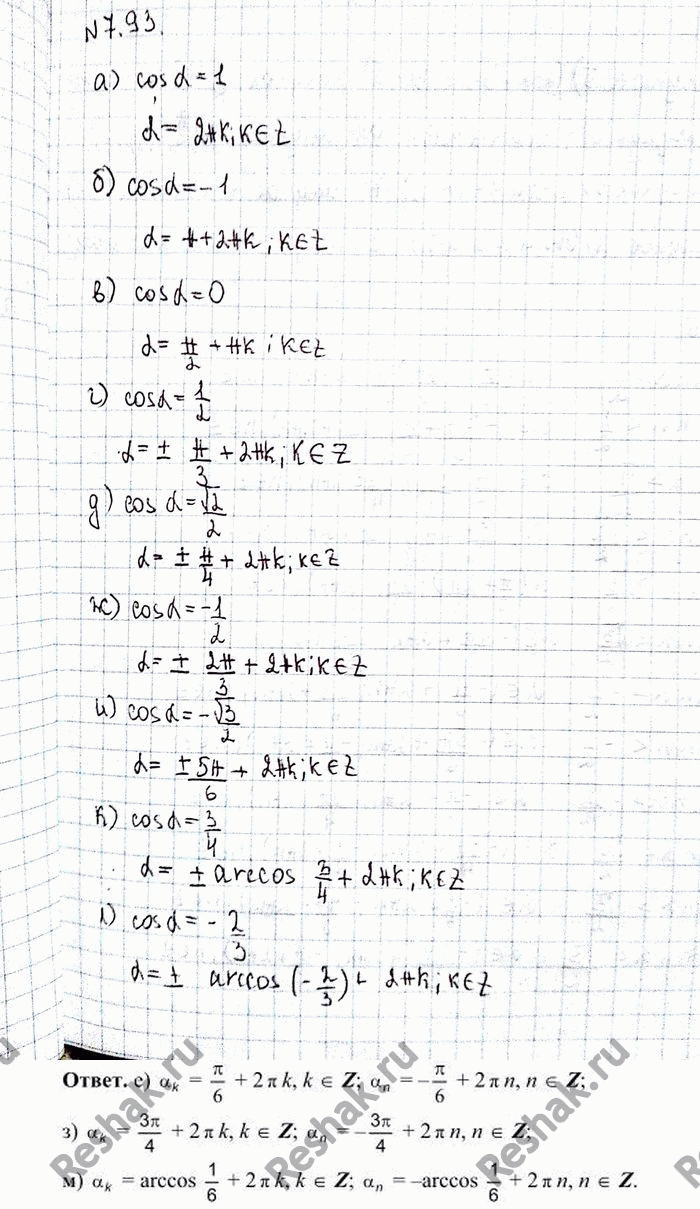 N7.93.
а) cos α = 1
α = 2πk; k ∈ Z
б) cos α = -1
α = π + 2πk; k ∈ Z
в) cos α = 0
α = π/2 + πk; k ∈ Z
г) cos α = 1/2
α = ± π/3 + 2πk; k ∈ Z
д) cos α = √2/2
α = ± π/4 + 2πk; k ∈ Z
ж) cos α = -1/2
α = ± 2π/3 + 2πk; k ∈ Z
и) cos α = -√3/2
α = ± 5π/6 + 2πk; k ∈ Z
к) cos α = 3/4
α = ± arccos 3/4 + 2πk; k ∈ Z
л) cos α = - 2/3
α = ± arccos (-2/3) + 2πk; k ∈ Z
Ответ. е) αₖ = π/6 + 2πk, k ∈ Z; αₙ = -π/6 + 2πn, n ∈ Z;
з) αₖ = 3π/4 + 2πk, k ∈ Z; αₙ = -3π/4 + 2πn, n ∈ Z;
м) αₖ = arccos 1/6 + 2πk, k ∈ Z; αₙ = -arccos 1/6 + 2πn, n ∈ Z.
Reshak.ru
Reshak.ru
Reshak.ru